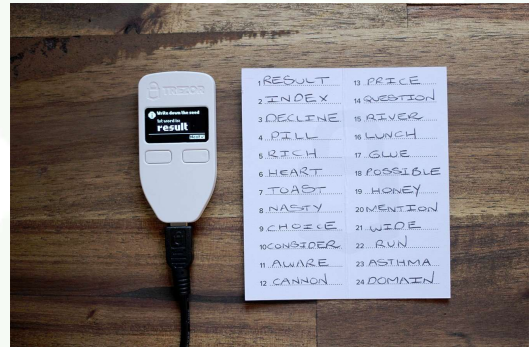 TREZOR
Write down the seed
1st word is:
result
Next
1 RESULT
2 INDEX
3 DECLINE
4 PILL
5 RICH
6 HEART
7 TOAST
8 NASTY
9 CHOICE
10 CONSIDER
11 AWARE
12 CANNON
13 PRICE
14 QUESTION
15 RIVER
16 LUNCH
17 GLUE
18 POSSIBLE
19 HONEY
20 MENTION
21 WIDE
22 RUN
23 ASTHMA
24 DOMAIN